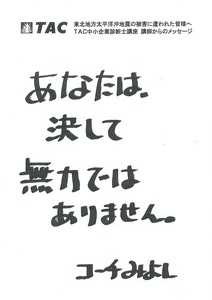 TAC 東北地方太平洋沖地震の被害に遭われた皆様へ
TAC中小企業診断士講座 講師からのメッセージ
あなたは、
決して
無力では
ありません。
コーチみよし